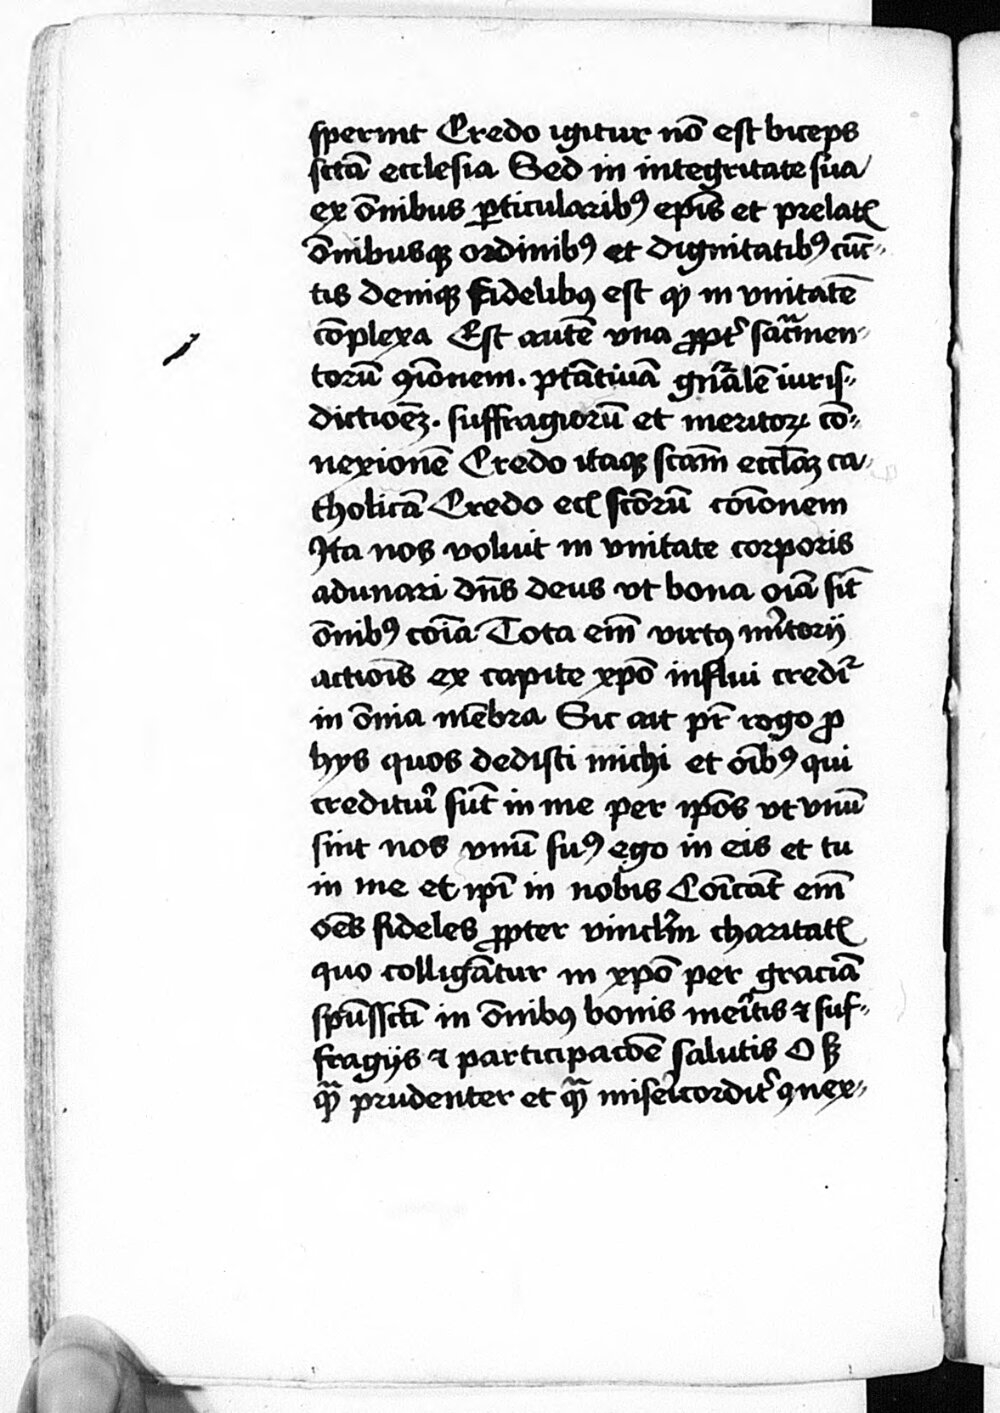 sperint Credo igitur nō est biceps
sctā ecclesia Sed in integritate sua
ex ōnibus ꝑticularibꝰ epīs et prelatꝭ
ōnibusqꝫ ordinibꝰ et dignitatibꝰ cūc-
tis deniqꝫ fidelibꝰ est qͥ in vnitatē
cōplexa Est autē vna ꝓpt᷑ sac̄men-
torū ꝯīonem. ptātiuā gn̄alē iuris-
dictiōeꝫ. suffragiorū et meritoꝝ cō-
nexionē Credo itaqꝫ scam̄ eccl̄aꝫ ca-
tholicā Credo eclꝭ scōrū cōionem
Ita nos voluit in vnitate corporis
adunari dn̄s deus vt bona oīa sīt
ōnibꝰ cōīa Tota em̄ virtꝰ m̄itorij
actiōis ex capite xp̄o influi credit᷑
in ōnia mēbra Sic ait pr̄ rogo ꝓ
hys quos dedisti michi et oībꝰ qui
credituri sūt in me per ip̄os vt vnū
sint nos vnū sumꝰ ego in eis et tu
in me et ip̄i in nobis Cōīcāt em̄
oēs fideles ꝓpter vincl̄m charitatꝭ
quo colligātur in xp̄o per graciā
spūssctī in ōnibꝰ bonis meītis ⁊ suf-
fragijs ⁊ participacōe salutis O
qͣꝫ prudenter et qͣꝫ misericordit᷑ ꝯnex-